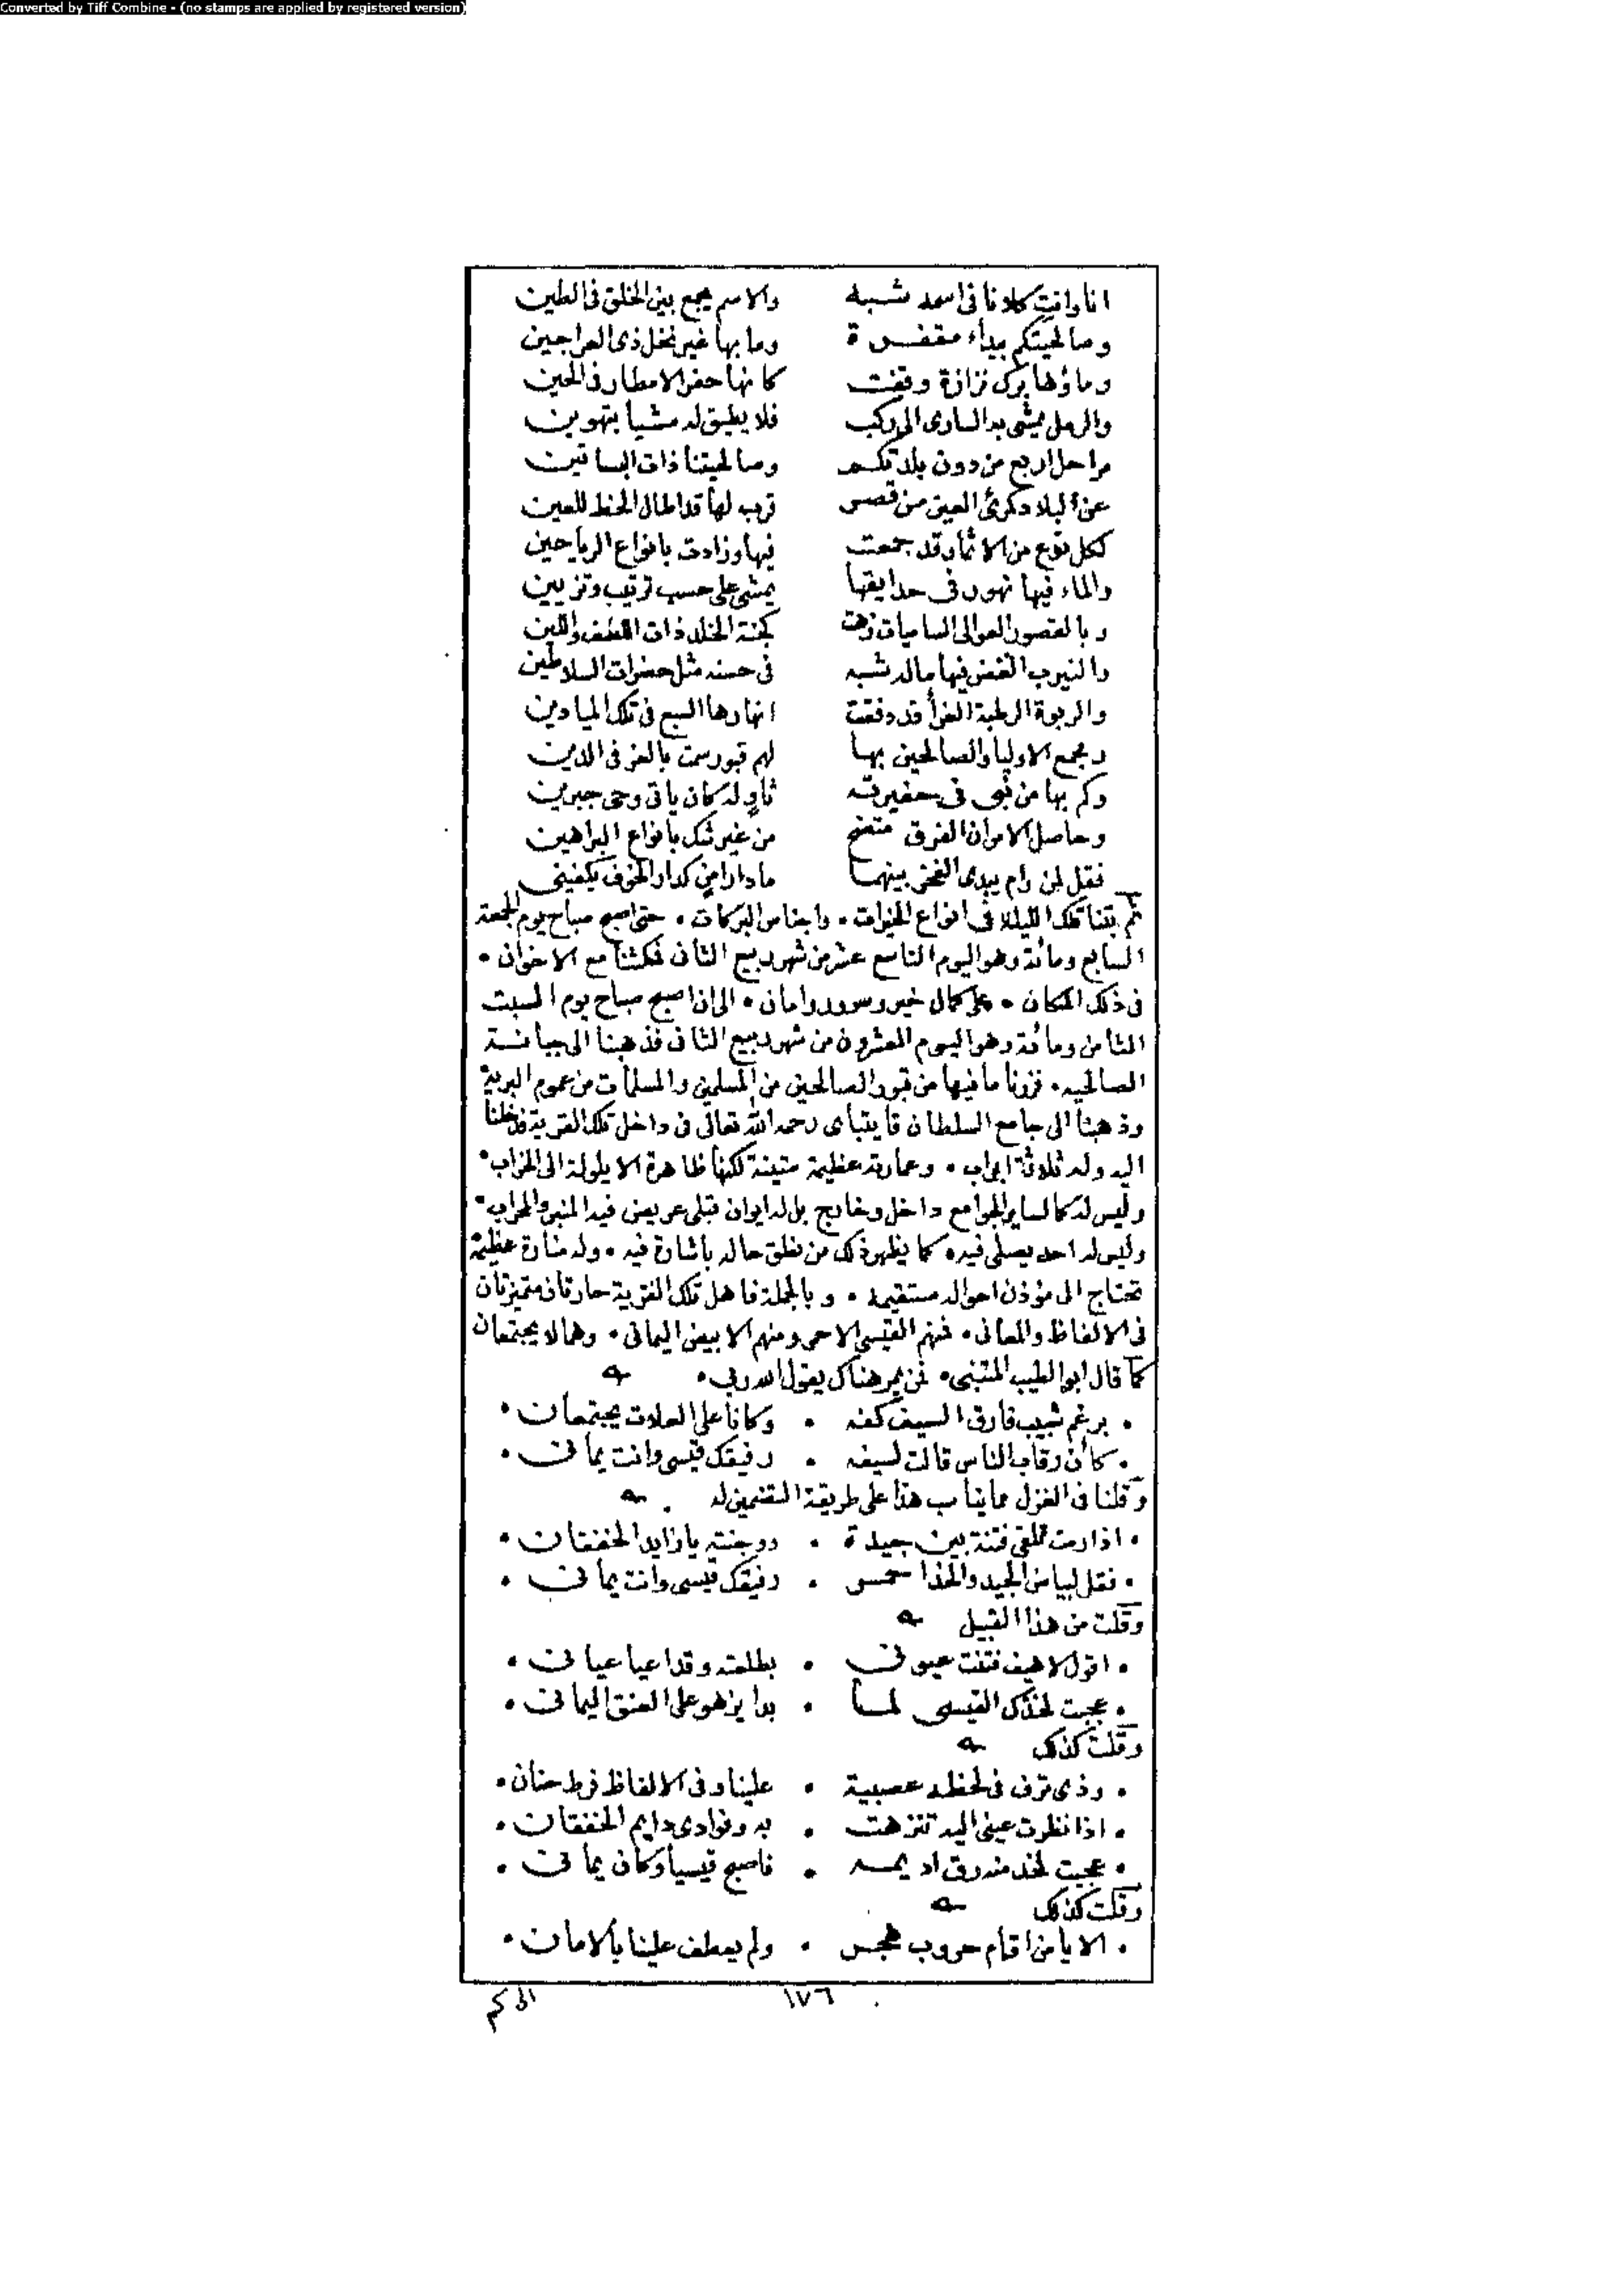 Converted by Tiff Combine - (no stamps are applied by registered version)
انا وانت كلانا فى اسمه شبه والاسم يجمع بين الخلق فى الطين
وصالحيتكم بيداء مقفرة وما بها غير نخل ذى العراجين
وماؤها برك نزازة وقفت كانها حفر الامطار فى الحين
والرمل يمشى به السارى الى ركب فلا يطيق له مشيا بتهوين
مراحل اربع من دون بلدتكم وصالحيتنا ذات البساتين
عن البلاد كرئ العين من قصر قرب لها قد اطال الحظ للعين
لكل نوع من الاثمار قد جمعت فيها وزادت بانواع الرياحين
والماء فيها نهور فى حدايقها يمشى على حسب ترتيب وتزيين
وبالقصور العوالى الساميات زهت كجنة الخلد ذات اللطف واللين
والنيرب الغض فيها ماله شبه فى حسنه مثل حضرات السلاطين
والربوة الرطبة الغرأ قد دفقت انهارها السبع فى تلك الميادين
ومجمع الاوليا والصالحين بها لهم قبور سمت بالعز فى الدين
وكم بها من نبى فى حفيرته ثاو له كان ياتى وحى جبرين
وحاصل الامر ان الفرق متضح من غير شك بانواع البراهين
فقل لمن رام يبدى الفخر بينهما ما دار امن كدار الخوف يكفينى
ثم بتنا تلك الليلة فى انواع الخيرات • واجناس البركات • حتى اصبح صباح يوم الجمعة
السابع ومائة وهو اليوم التاسع عشر من شهر ربيع الثانى فمكثنا مع الاخوان •
فى ذلك المكان • على كمال خير وسرور وامان • الى ان اصبح صباح يوم السبت
الثامن ومائة وهو اليوم العشرون من شهر ربيع الثانى فذهبنا الى جبانة
الصالحيه • فزرنا ما فيها من قبور الصالحين من المسلمين والمسلمات من عموم البرية
وذهبنا الى جامع السلطان قايتباى رحمه الله تعالى فى داخل تلك القرية فدخلنا
اليه وله ثلاثة ابواب • وعمارته عظيمة متينة لكنها ظاهرة الايلولة الى الخراب •
وليس له كما لساير الجوامع داخل وخارج بل له ايوان قبلى عريض فيه المنبر والمحراب •
وليس له احد يصلى فيه • كما يظهر ذلك من نطق حاله باشارة فيه • وله منارة عظيمة
تحتاج الى مؤذن احواله مستقيمه • وبالجملة فاهل تلك القرية حارتان متميزتان
فى الالفاظ والمعانى • فمنهم القيسى الاحمر ومنهم الابيض اليمانى • وهما لا يجتمعان
كما قال ابو الطيب المتنبى • فمن يمر هناك يقول الله ربى •
• برغم شبيب فارق السيف كفه • وكانا على العلات يجتمعان •
• كأن رقاب الناس قالت لسيفه • رفيقك قيسى وانت يمانى •
وقلنا فى الغزل مما يناسب هذا على طريقة التضمين له
• اذا رمت تلقى فتنة بين جيده • ووجنته يا زايد الخفقان •
• فقل لبياض الجيد والخد احمر • رفيقك قيسى وانت يمانى •
وقلت من هذا القبيل
• اقول لاهيف فتنت عيونى • بطلعته وقد اعيا عيانى •
• عجبت لخدك القيسى لما • بدا يزهو على العنق اليمانى •
وقلت كذلك
• وذى ترف فى لحظه عصبية • علينا وفى الالفاظ فرط حنان •
• اذا نظرت عينى اليه تنزهت • به وفوادى دايم الخفقان •
• عجبت لخد منه رق اديمه • فاصبح قيسيا وكان يمانى •
وقلت كذلك
• الا يا من اقام حروب هجر • ولم يعطف علينا بالامان •
١٧٦ الى كم